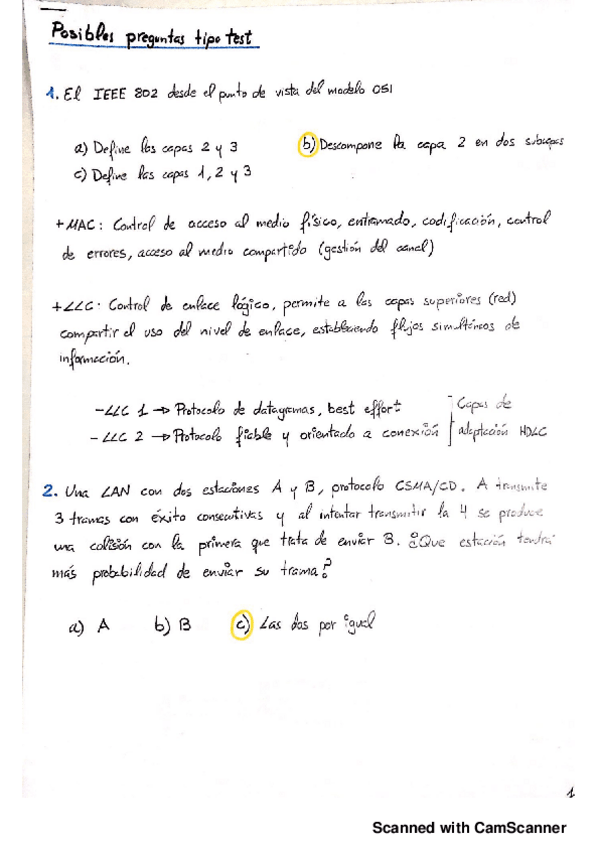 Posibles preguntas tipo test
1. El IEEE 802 desde el punto de vista del modelo OSI
a) Define las capas 2 y 3
b) Descompone la capa 2 en dos subcapas
c) Define las capas 1, 2 y 3
+ MAC: Control de acceso al medio físico, entramado, codificación, control
de errores, acceso al medio compartido (gestión del canal)
+ LLC: Control de enlace lógico, permite a las capas superiores (red)
compartir el uso del nivel de enlace, estableciendo flujos simultáneos de
información.
- LLC 1 → Protocolo de datagramas, best effort
- LLC 2 → Protocolo fiable y orientado a conexión
Capas de
adaptación HDLC
2. Una LAN con dos estaciones A y B, protocolo CSMA/CD. A transmite
3 tramas con éxito consecutivas y al intentar transmitir la 4 se produce
una colisión con la primera que trata de enviar B. ¿Que estación tendrá
más probabilidad de enviar su trama?
a) A b) B c) Las dos por igual
1
Scanned with CamScanner